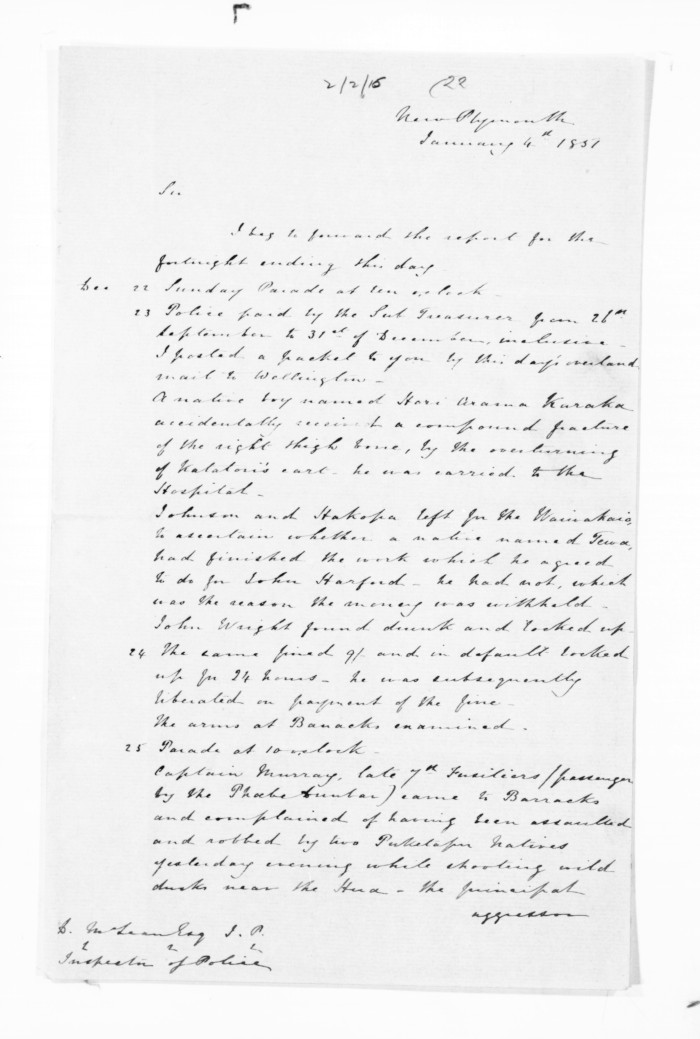 2/2/15 (22
New Plymouth
January 4th 1851
Sir
I beg to forward the report for the
fortnight ending this day
Dec 22 Sunday Parade at ten o,clock -
23 Police paid by the Sub Treasurer from 26th
September to 31st of December, inclusive -
I posted a packet to you by this day's overland
mail to Wellington -
A native boy named Hori Arama Karaka
accidentally receivd a compound fracture
of the right thigh bone, by the overturning
of Katatori's cart - he was carried to the
Hospital -
Johnson and Hakopa left for the
to ascertain whether a native named Tewa,
had finished the work which he agreed
to do for John Harford - he had not, which
was the reason the money was withheld -
John Wright found drunk and locked up -
24 The same fined 9/- and in default locked
up for 24 hours - he was subsequently
liberated on payment of the fine -
The arms at Barracks examined.
25 Parade at 10 o,clock -
Captain Murray, late 7th Fusiliers (passenger
by the Phoebe Dunbar) came to Barracks
and complained of having been assaulted
and robbed by two Puketapu Natives
yesterday evening while shooting wild
ducks near the Hua - the principal
aggressor
D. McLean Esq J. P.
Inspector of Police